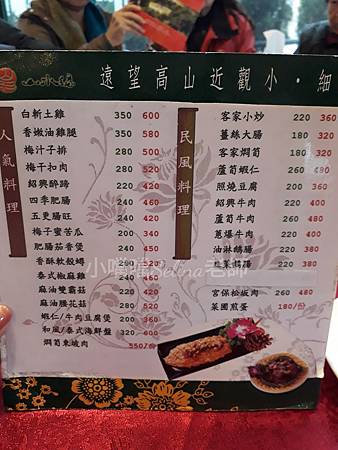 遠望高山近觀小·細
人氣料理
白斬土雞 350 600
香嫩油雞腿 350 500
梅汁子排 280 500
梅干扣肉 280 520
紹興醉蹄 220 420
四季肥腸 240 440
五更腸旺 240 420
梅子蜜苦瓜 200 360
肥腸茄香煲 240 460
香酥軟殼蟳
泰式椒麻雞
麻油雙菇 220
麻油腰花 260 500
蝦仁/牛肉豆腐煲 220 400
和風/泰式海鮮盤 320 600
燜筍東坡肉 550/份
民風料理
客家小炒 220 360
薑絲大腸 180 320
客家燜筍 180 320
蘆筍蝦仁 260 480
照燒豆腐 200 360
紹興牛肉 220 400
蘆筍牛肉 220 400
蔥爆牛肉 220 400
油淋鵝腸 220 400
宮保松板肉 260 480
菜圃煎蛋 180/份
小嘴喳Selina老師